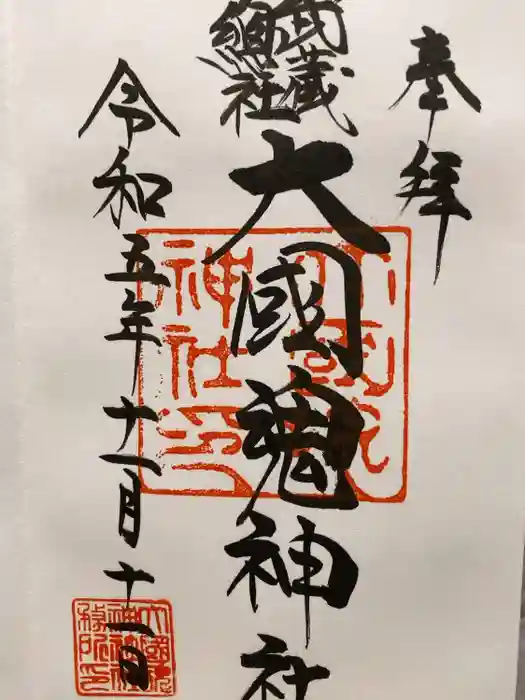 奉拝
武蔵
総社
大國魂神社
令和五年十一月十一日
大國魂
神社印
大國魂
神社社
務所印